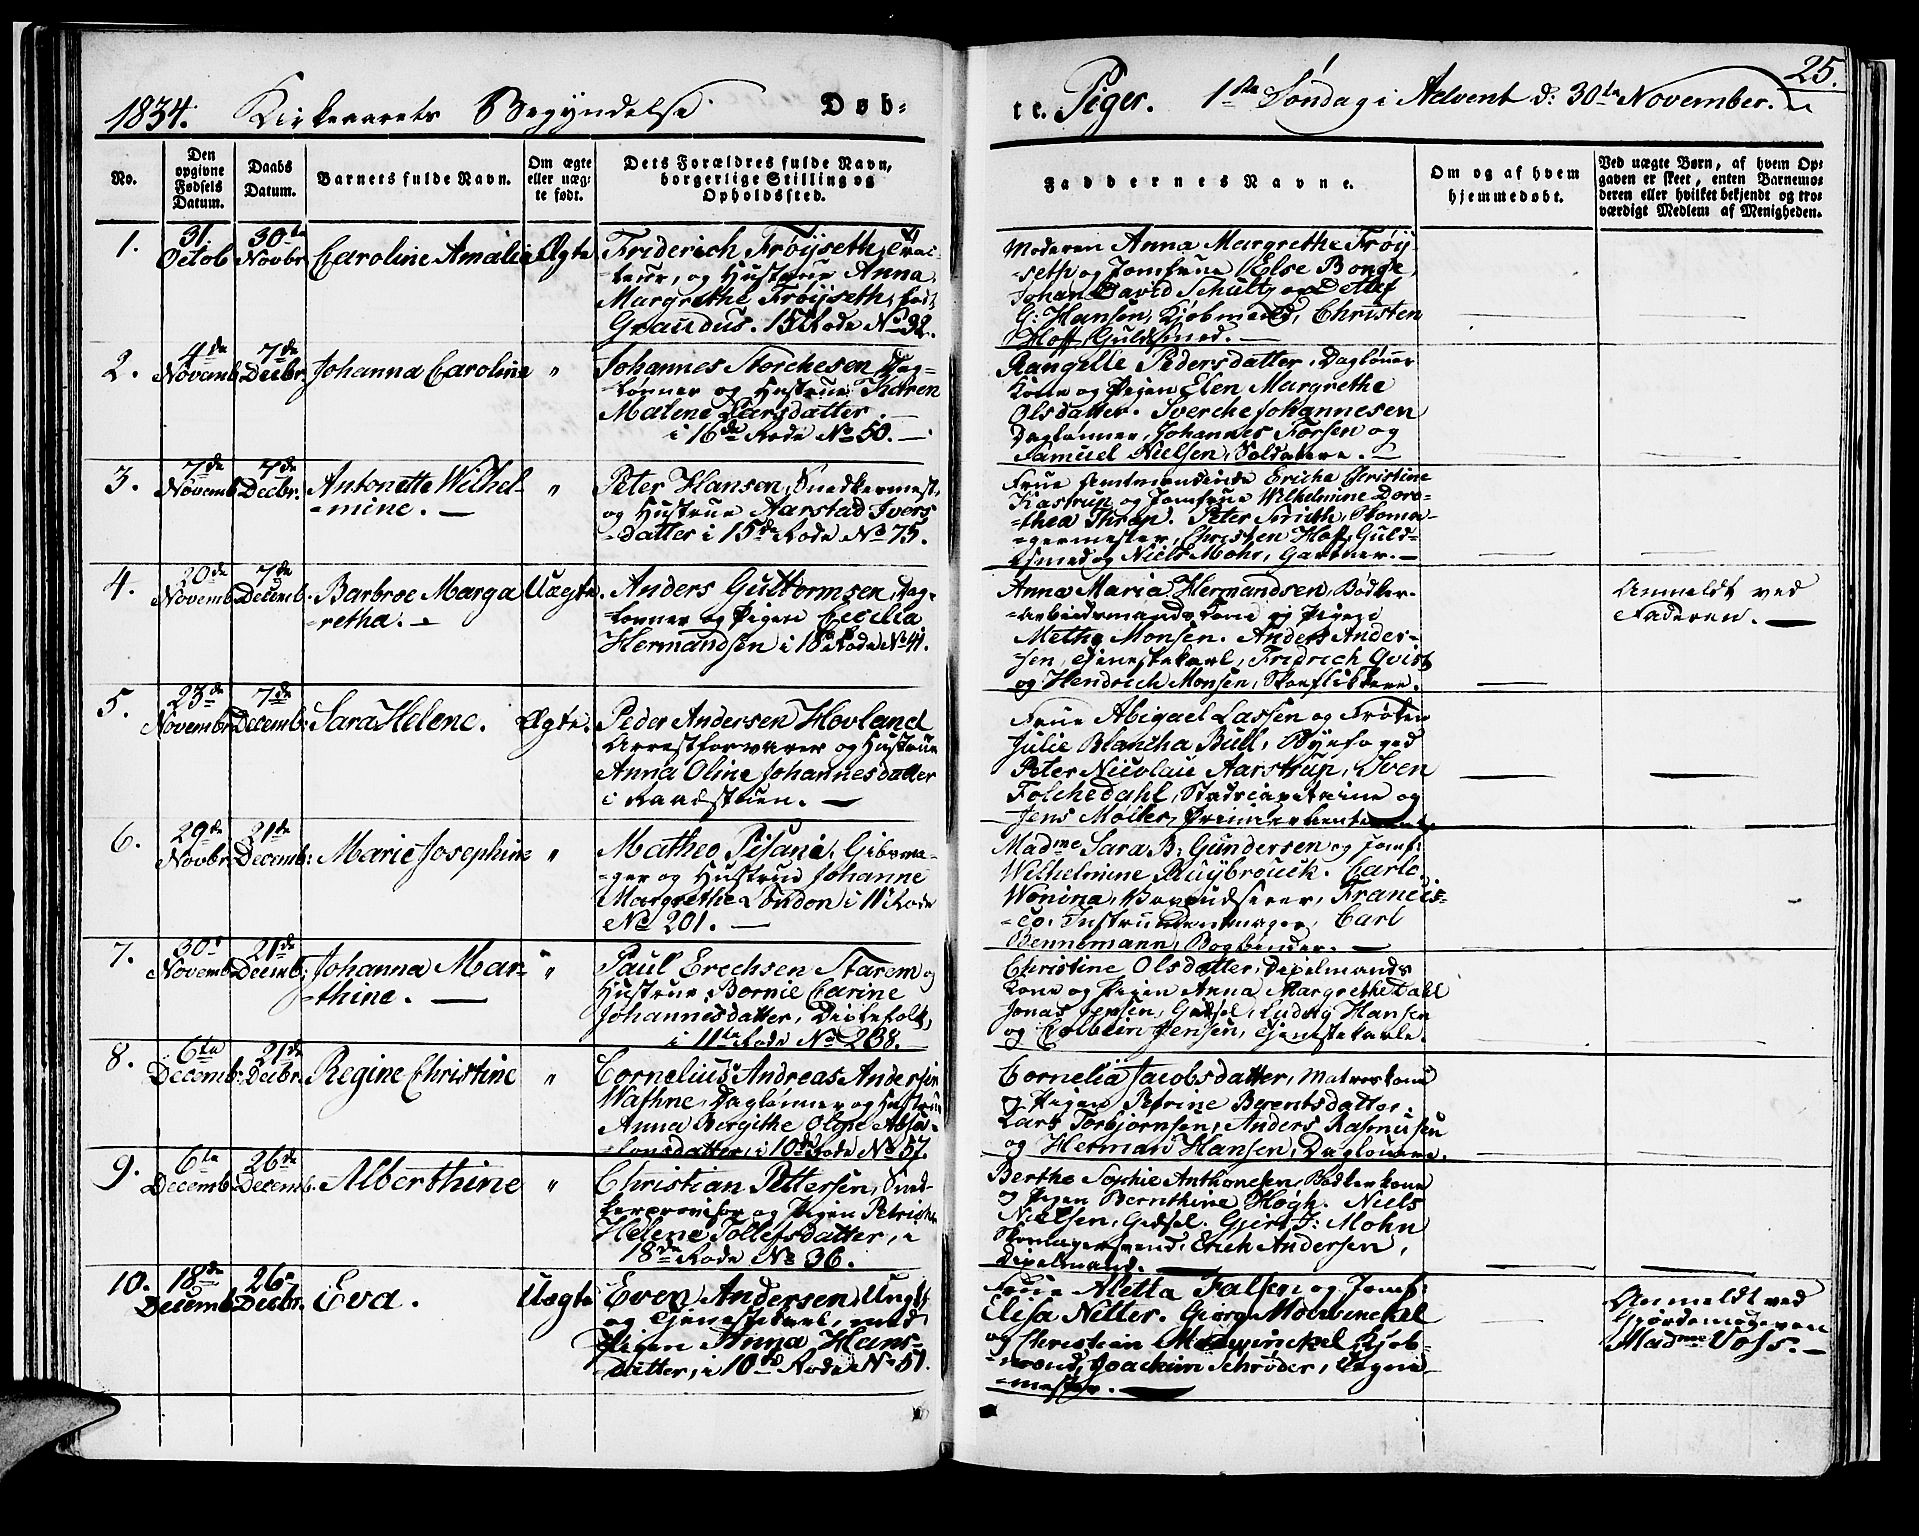 1834. Kirkeaarets Begyndelse. Døb-
te Piger. 1ste Søndag i Advent d: 30te November.
25.
No.
Den opgivne Fødsels Datum.
Daabs Datum.
Barnets fulde Navn.
Om ægte eller uæg- te født.
Dets Forældres fulde Navn, borgerlige Stilling og Opholdssted.
Faddernes Navne.
Om og af hvem hjemmedøbt.
Ved uægte Børn, af hvem Op- gaven er skeet, enten Barnemo- deren eller hvilket bekjendt og tro- værdigt Medlem af Menigheden.
1.
31.
Octob
30te
Novbr
Caroline Amalia
Ægte
Friderich Frøyseth,
og Hustrue Anna
Margrethe Frøyseth, født
Graudus. 15de Rode No 32.
Moderen Anna Margrethe Frøy-
seth og Jomfrue Else Bonge,
Johan David Schultz og Detlef
G: Hansen, Kjøbmænd, Christen
Hoff, Guldsmed.
2.
4de
Novemb.
7de
Decbr.
Johanna Caroline
"
Johannes Storchesen Dag-
lønner og Hustrue Karen
Malene Larsdatter.
i 16de Rode No 50.
Rangelle Pedersdatter, Dagløner
Kone og Pigen Elen Margrethe
Olsdatter. Sverche Johannesen
Dagløner, Johannes Forsen og
Samuel Nielsen, Soldatere.
3.
7de
Novemb
7de
Decbr.
Antonette Wilhel-
-mine.
"
Peter Hansen, Snedkermest.
og Hustrue Aarstad Ivers
-datter i 15de Rode No 75.
Frue Amtmandinde Eriche Christine
Kastrup og Jomfrue Wilhelmine Doro-
-thea Thrap. Peter Smith, Skoma-
-germester, Christen Hoff, Guld-
smed og Niels Mohr, Gartner.
4.
20de
Novemb
7de
Decemb.
Barbroe Marga
-retha.
Uægte.
Anders Guttormsen, Dag-
lønner og Pigen Cecilia
Hermandsen i 18de Rode No 41.
Anna Maria Hermandsen, Bødker-
-arbeidsmands Kone og Pigen
Methe Monsen. Anders Ander-
sen, Tjenestekarl, Fridrich Qvist
og Hendrich Monsen, Skoeflikkere.
Anmeldt ved
Faderen.
5.
23de
Novembr
7de
Decemb:
Sara Helene.
Ægte.
Peder Andersen Hovland
Arrestforvarer og Hustrue
Anna Oline Johannesdatter
i Raadstuen.
Frue Abigael Lassen og Frøken
Julie Blancha Bull, Byefoged
Peter Nicolai Aarstrup, Sven
Folchedahl, Stadscapitaine og
Jens Møller, Premierlieutenant.
6.
29de
Novbr.
21de
Decemb:
Marie Josephine
"
Matheo Pisani, Gibsma-
-ger og Hustrue Johanne
Margrethe London i 11te Rode
No 201.
Madme Sara B: Gundersen og Jomf:
Wilhelmine Ruybrouck. Carlo
Wonina, Francis-
-co, Instrumentmager, Carl
Bennemann, Bogbinder.
7.
30te
Novemb
21de
Decemb:
Johanna Mar-
-thine.
"
Paul Erechsen Starem og
Hustrue, Bornie Carine
Johannisdatter,
i 11te Rode No 238.
Christine Olsdatter, Pipelmands
Kone og Pigen Anna Margrethe Dahl
Jonas Jensen, Gesel, Ludvig Hansen
og Jensen, Tjenestekarle.
8.
6te
Decemb:
21de
Decbr.
Regine Christine
"
Cornelius Andreas Andersen
Wathne, Daglønner og Hustrue
Anna Birgithe Olene Absa-
-lonsdatter, i 10de Rode No 57.
Cornelia Jacobsdatter, Matroskone
og Pigen Petrine Berentsdatter,
Lars Torbjørnsen, Anders Rasmusen
og Herman Hansen, Daglønere.
9.
6te
Decemb
26de
Decemb.
Alberthine
"
Christian Pettersen, Sned-
kersvend og Pigen Petriche
Helene Tollefsdatter, i
18de Rode No 36.
Berthe Sophie Anthonesen, Bødkerkone
og Pigen Bernthine Høgh. Niels
Nielsen, Gesel. Gjert J: Mohn
Skomagersvend. Erich Andersen,
Pipelmand.
10.
18de
Decemb
26de
Decbr.
Eva.
Uægte
Even Andersen, Ungk.
og Tjenestekarl, med
Pigen Anna Hans-
datter, i 10de Rode No 51.
Frue Aletta Falsen og Jomf:
Elisa Nitter. Georg Mowinckel
og Christian Mowinckel, Kjøb-
-mænd, Joachim Schrøder, Tegne-
-mester.
Anmeldt ved
Gjordemoderen
Madme Voss.